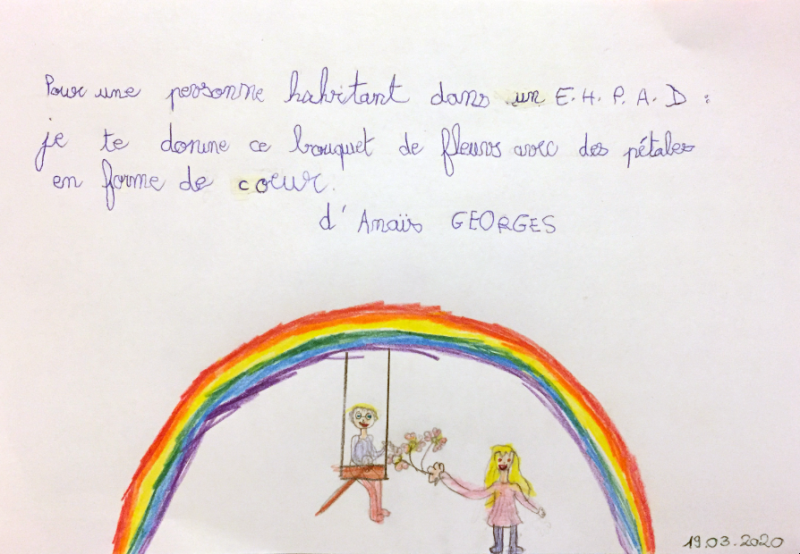 Pour une personne habitant dans un E.H.P.A.D :
je te donne ce bouquet de fleurs avec des pétales
en forme de coeur.
d'Anaïs GEORGES
19.03.2020